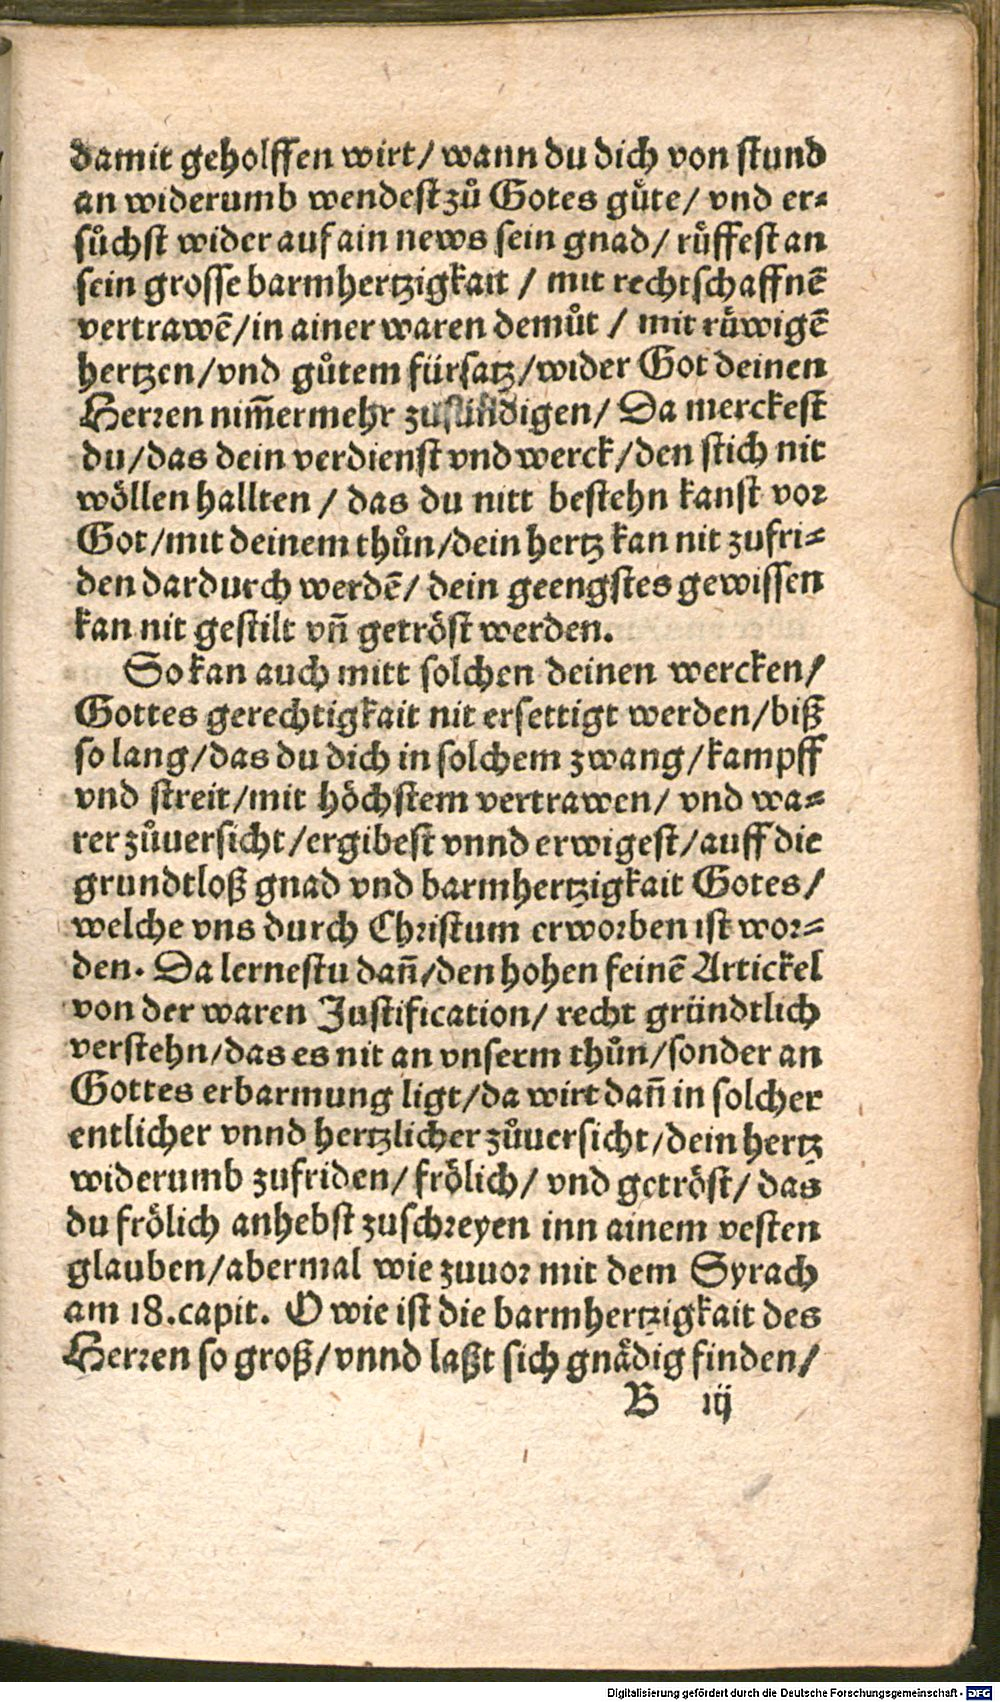 damit geholffen wirt/ wann du dich von stund
an widerumb wendest zů Gotes gůte/ vnd er⸗
sůchst wider auf ain news sein gnad/ růffest an
sein grosse barmhertzigkait / mit rechtschaffnē
vertrawē/in ainer waren demůt / mit rüwigē
hertzen/vnd gůtem fürsatz/wider Got deinen
Herren nim̄ermehr zusündigen/ Da merckest
du/das dein verdienst vnd werck/den stich nit
wöllen hallten / das du nitt bestehn kanst vor
Got/mit deinem thůn/dein hertz kan nit zufri⸗
den dardurch werdē/ dein geengstes gewissen
kan nit gestilt vn̄ getröst werden.
So kan auch mitt solchen deinen wercken/
Gottes gerechtigkait nit ersettigt werden/biß
so lang/das du dich in solchem zwang/kampff
vnd streit/mit höchstem vertrawen/ vnd wa⸗
rer zůuersicht/ergibest vnnd erwigest/auff die
grundtloß gnad vnd barmhertzigkait Gotes/
welche vns durch Christum erworben ist wor⸗
den. Da lernestu dan̄/den hohen feinē Artickel
von der waren Justification/ recht gründtlich
verstehn/das es nit an vnserm thůn/sonder an
Gottes erbarmung ligt/da wirt dan̄ in solcher
entlicher vnnd hertzlicher zůuersicht/dein hertz
widerumb zufriden/ frölich/ vnd getröst/ das
du frölich anhebst zuschreyen inn ainem vesten
glauben/abermal wie zuuor mit dem Syrach
am 18.capit. O wie ist die barmhertzigkait des
Herren so groß/vnnd laßt sich gnådig finden/
B iij
Digitalisierung gefördert durch die Deutsche Forschungsgemeinschaft - DFG